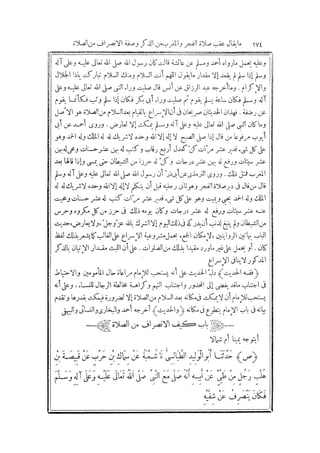 ١٧٤ مايقال عقب صلاة الفجر والمغرب من الذكر وصفة الانصراف من الصلاة
وعليه يحمل مارواه أحمد ومسلم عن عائشة قالت كان رسول الله صلى الله تعالى عليه وعلى آله
وسلم إذا سلم لم يقعد إلا مقدار مايقول اللهم أنت السلام ومنك السلام تباركت ياذا الجلال
والإكرام. وماأخرجه عبد الرزاق عن أنس قال صليت وراء النبي صلى الله تعالى عليه وعلى
آله وسلم فكان ساعة يسلم يقوم ثم صليت وراء أبي بكر فكان إذا سلم وثب فكأنما يقوم
عن رضفة. فهذان الحديثان صريحان في الإسراع بالقيام بعد السلام من الصلاة هو الأصل
وما كان النبي صلى الله تعالى عليه وعلى آله وسلم يمكث إلا لعارض. وروى أحمد عن أبي
أيوب مرفوعا من قال إذا صلى الصبح لا إله إلا الله وحده لا شريك له له الملك وله الحمد وهو
على كل شيء قدير عشر مرات كن كعدل أربع رقاب وكتب له بهن عشر حسنات ومحي عنه بهن
عشر سيئات ورفع له بهن عشر درجات وكن له حرزا من الشيطان حتى يمسي وإذا قالها بعد
المغرب فمثل ذلك. وروى الترمذي عن أبي ذر أن رسول الله صلى الله تعالى عليه وعلى آله وسلم
قال من قال في دبر صلاة الفجر وهو ثاني رجليه قبل أن يتكلم لا إله إلا الله وحده لا شريك له له
الملك وله الحمد يحيي ويميت وهو على كل شيء قدير عشر مرات كتب له عشر حسنات ومحيت
عنه عشر سيئات ورفع له عشر درجات وكان يومه ذلك في حرز من كل مكروه وحرس
من الشيطان ولم ينبغ لذنب أن يدركه في ذلك اليوم إلا الشرك بالله عز وجل
كان. أو يحمل على غير ماورد مقيدا بذلك من الصلوات. على أن اللبث مقدار الإتيان بالذكر
المذكور لا ينافي الإسراع
﴿فقه الحديث﴾ دل الحديث على أنه يستحب للإمام مراعاة حال المأمومين والاحتياط
في اجتناب ماقد يفضي إلى المحذور واجتناب التهم وكراهية مخالطة الرجال للنساء. وعلى أنه
يستحب للإمام أن لا يمكث في مكانه بعد السلام من الصلاة إلا لضرورة فيمكث بقدرها وتقدم
بيانه في باب الإمام يتطوع في مكانه ﴿والحديث﴾ أخرجه أحمد والبخاري والنسائي والبيهقي
باب كيف الانصراف من الصلاة
أيتوجه يمينا أم شمالا
﴿ص﴾ حَدَّثَنَا أَبُو الْوَلِيدِ الطَّيَالِسِيُّ نَا شُعْبَةُ عَنْ سِمَاكِ بْنِ حَرْبٍ عَنْ قَبِيصَةَ بْنِ
هُلْبٍ رَجُلٍ مِنْ طَيِّئٍ عَنْ أَبِيهِ أَنَّهُ صَلَّى مَعَ النَّبِيِّ صَلَّى اللهُ تَعَالَى عَلَيْهِ وَعَلَى آلِهِ وَسَلَّمَ
فَكَانَ يَنْصَرِفُ عَنْ شِقَّيْهِ